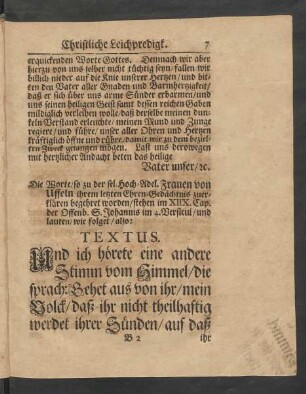 Christliche Leichpredigt. 7
erquickenden Worte Gottes. Demnach wir aber
hierzu von uns selber nicht tüchtig seyn/ fallen wir
billich nieder auf die Knie unserer Hertzen/ und bit-
ten den Vater aller Gnaden und Barmhertzigkeit/
daß er sich über uns arme Sünder erbarmen/ und
uns seinen heiligen Geist samt dessen reichen Gaben
mildiglich verleihen wolle/ daß derselbe meinen dun-
ckeln Verstand erleuchte/ meinen Mund und Zunge
regiere/ und führe/ unser aller Ohren und Hertzen
kräftiglich öffne und rühre/ damit wir zu dem beziel-
ten Zweck gelangen mögen. Last uns derowegen
mit hertzlicher Andacht beten das heilige
Vater unser/ ꝛc.
Die Worte/ so zu der sel. Hoch-Adel. Frauen von
Uffeln ihrem letzten Ehren-Gedächtnis zuer-
klären begehret worden/ stehen im XIIX. Cap.
der Offenb. S. Johannis im 4. Versicul/ und
lauten/ wie folget/ also:
TEXTUS.
Und ich hörete eine andere
Stimm vom Himmel/ die
sprach: Gehet aus von ihr/ mein
Volck/ daß ihr nicht theilhaftig
werdet ihrer Sünden/ auf daß
B 2 ihr